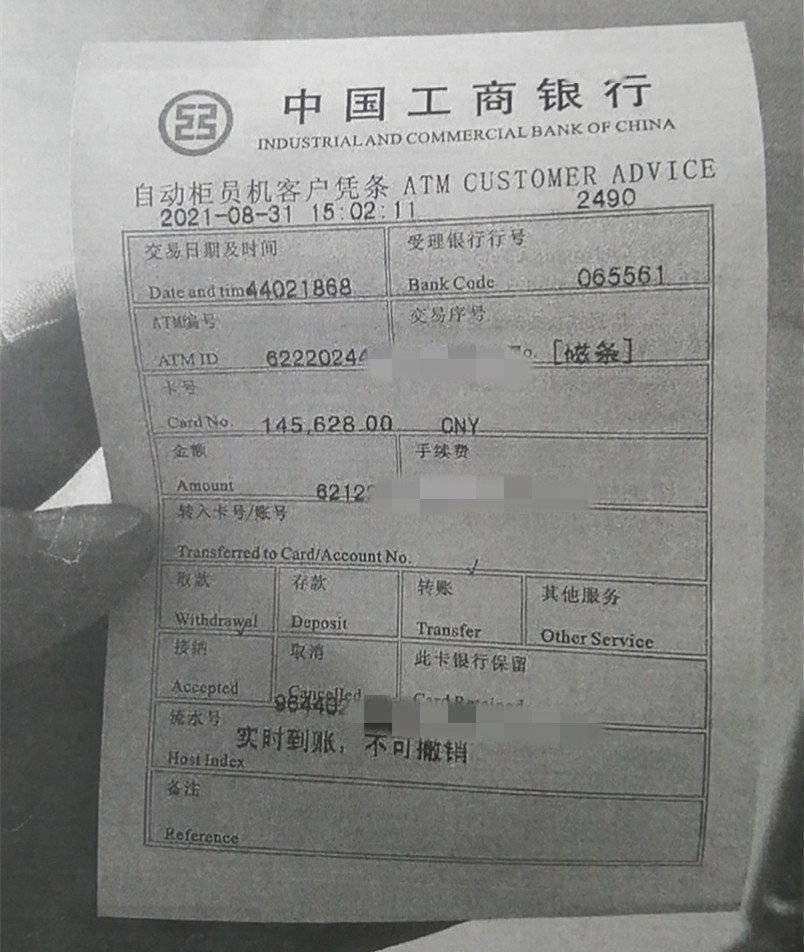 中国工商银行
INDUSTRIAL AND COMMERCIAL BANK OF CHINA
自动柜员机客户凭条 ATM CUSTOMER ADVICE
2021-08-31 15:02:11 2490
交易日期及时间 受理银行行号
Date and time 44021868 Bank Code 065561
ATM编号 交易序号
ATM ID 62220244 No. [磁条]
卡号
Card No. 145,628.00 CNY
金额 手续费
Amount 6212
转入卡号/账号
Transferred to Card/Account No.
取款 存款 转账 其他服务
Withdrawal Deposit Transfer Other Service
接纳 取消 此卡银行保留
Accepted Cancelled Card Retained
96440
流水号
实时到账，不可撤销
Host Index
备注
Reference